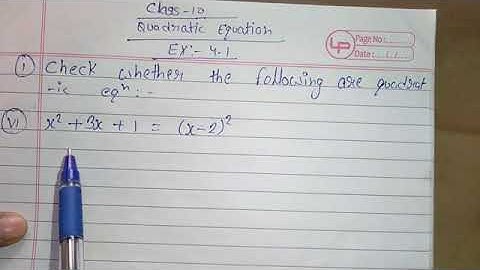 Class-10
Quadratic Equation
Ex:- 4.1
LP
Page No.:
Date: / /
(1) Check whether the following are quadrat
-ic eqⁿ :-
(vi) x² + 3x + 1 = (x-2)²